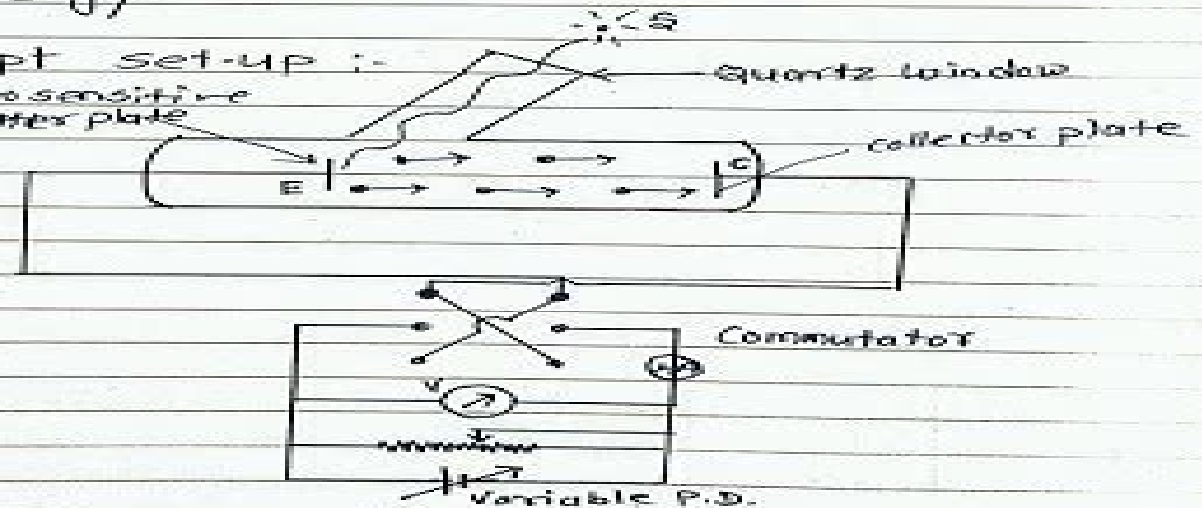 set-up :-
S
Quartz window
sensitive
plate
collector plate
E
C
Commutator
V
Variable P.D.